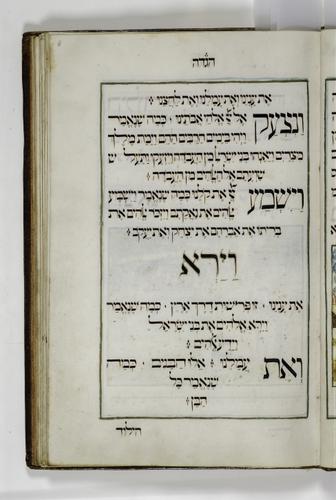 הגדה
את עניינו ואת עמלינו ואת לחצינו :
ונצעק אל ה אלהי אבתינו · כמה שנאמר
ויהי בימים הרבים ההם וימת מלך
מצרים ויאנחו בני ישראל מן העבודה ויזעקו ותעל ש
שועתם אל האלהים מן העבודה :
וישמע את קולנו כמה שנאמר וישמע
אלהים את נאקתם ויזכר אלהים את
בריתו את אברהם את יצחק ואת יעקב :
וירא
את ענינו · זו פרישות דרך ארץ · כמה שנאמר
וירא אלהים את בני ישראל
וידע אלהים :
ואת עמלינו · אלו הבנים · כמה
שנאמר כל
הבן :
הילוד